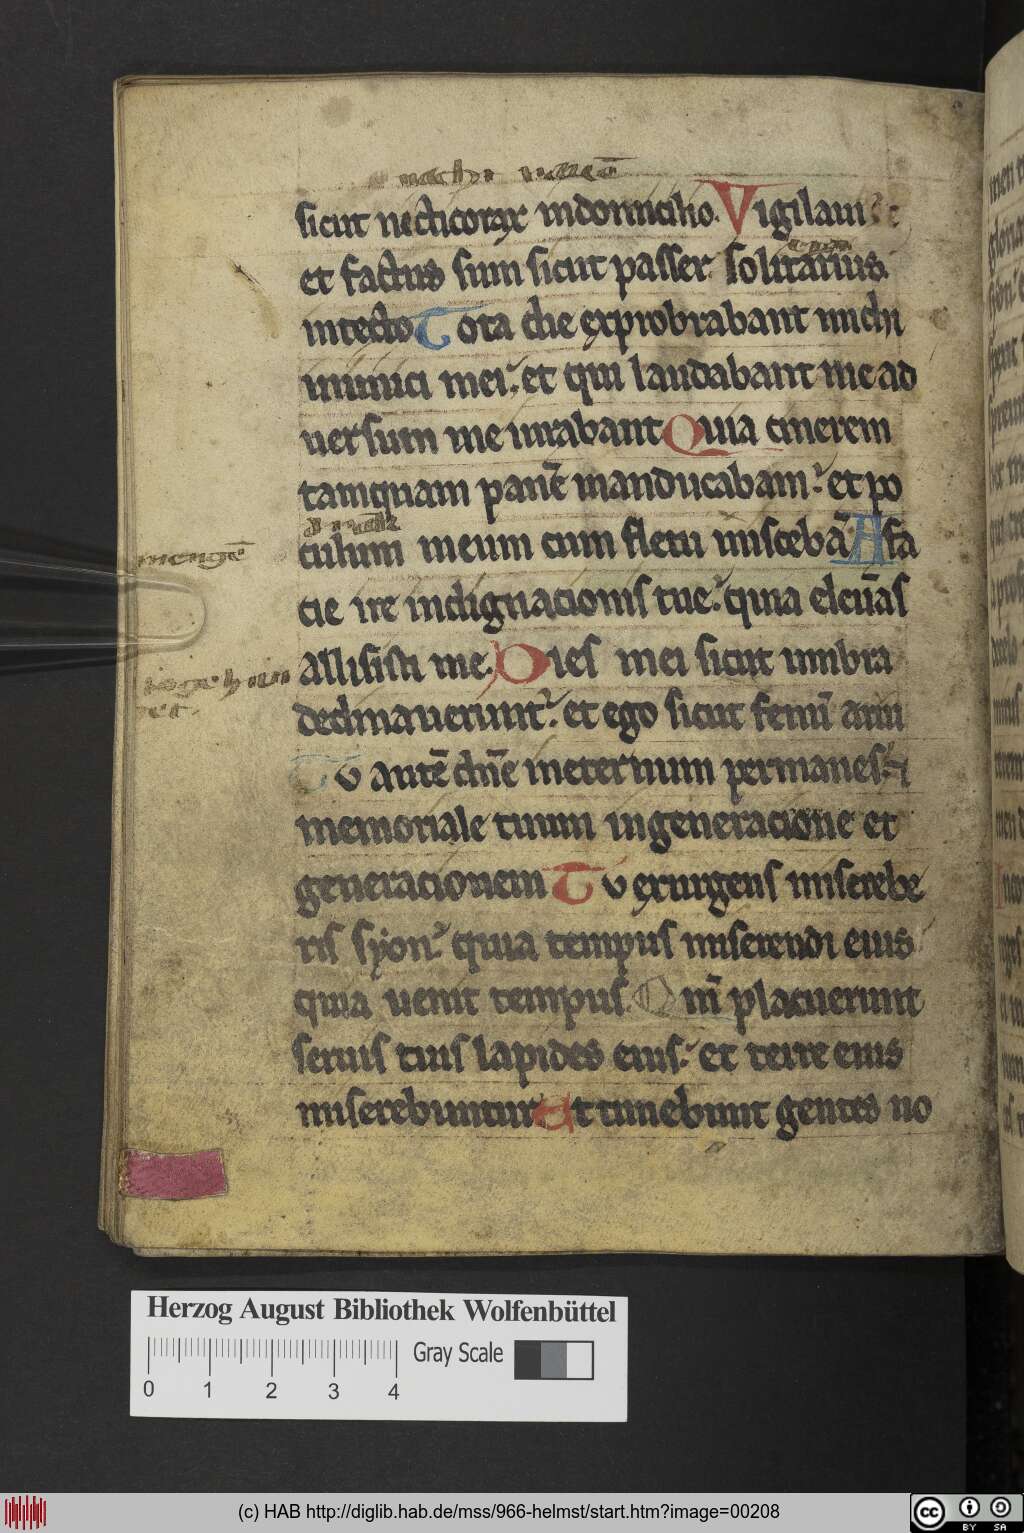 sicut necticorax indomicilio. Vigilaui
et factus sum sicut passer solitarius
intecto Tota die exprobrabant michi
inimici mei: et qui laudabant me ad
uersum me iurabant Quia cinerem
tamquam panē manducabam: et po
culum meum cum fletu miscebā A fa
mengē
cie ire indignacionis tue: quia eleuās
allisisti me. Dies mei sicut umbra
declinauerunt: et ego sicut fenū arui
Tu autē dn̄e ineternum permanes: ⁊
memoriale tuum ingeneracione et
generacionem Tu exurgens miserebe
ris syon: quia tempus miserendi eius
quia uenit tempus. Qm̄ placuerunt
seruis tuis lapides eius: et terre eius
miserebuntur Et timebunt gentes no
Herzog August Bibliothek Wolfenbüttel
Gray Scale
0 1 2 3 4
(c) HAB http://diglib.hab.de/mss/966-helmst/start.htm?image=00208
cc BY SA